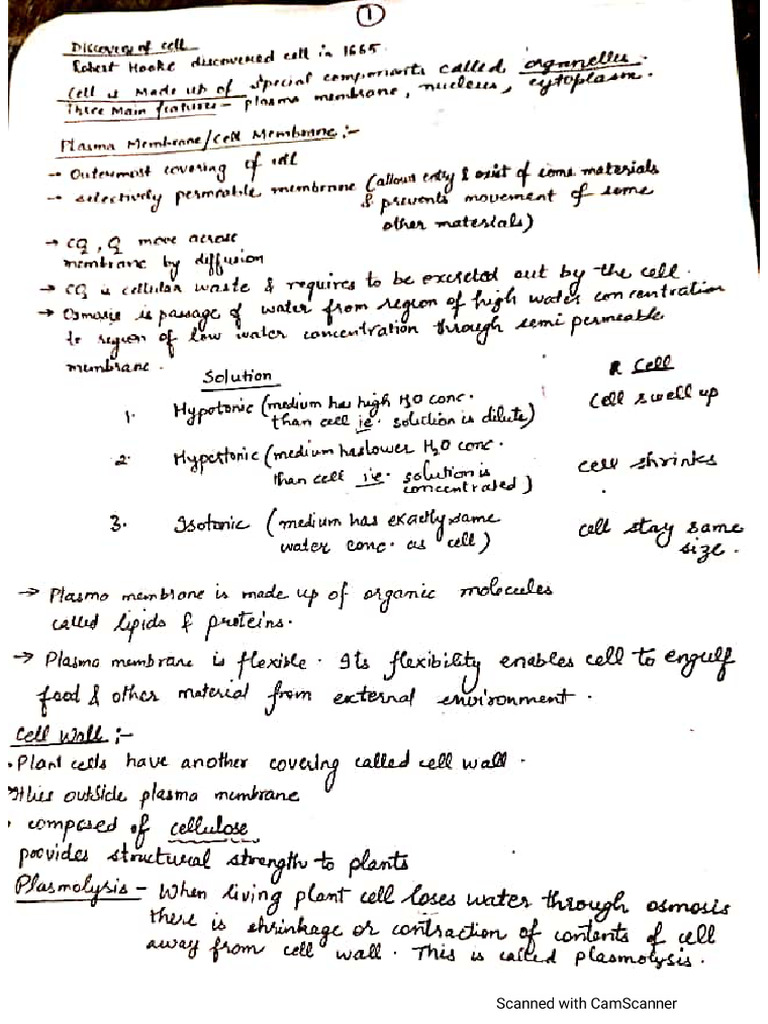 1
Discovery of cell
Robert Hooke discovered cell in 1665.
Cell is Made up of special components called organelles.
Three Main features - plasma membrane, nucleus, cytoplasm.
Plasma Membrane/Cell Membrane :-
→ Outermost covering of cell
→ selectively permeable membrane (allows entry & exit of some materials
& prevents movement of some
other materials)
→ CO2, O2 move across
membrane by diffusion
→ CO2 is cellular waste & requires to be excreted out by the cell.
→ Osmosis is passage of water from region of high water concentration
to region of low water concentration through semi permeable
membrane.
Solution Cell
1. Hypotonic (medium has high H2O conc. Cell swell up
than cell ie. solution is dilute)
2. Hypertonic (medium has lower H2O conc. cell shrinks
than cell i.e. solution is
concentrated)
3. Isotonic (medium has exactly same cell stay same
water conc. as cell) size.
→ Plasma membrane is made up of organic molecules
called lipids & proteins.
→ Plasma membrane is flexible. Its flexibility enables cell to engulf
food & other material from external environment.
Cell Wall :-
• Plant cells have another covering called cell wall.
It lies outside plasma membrane
• composed of cellulose
provides structural strength to plants
Plasmolysis - When living plant cell loses water through osmosis
there is shrinkage or contraction of contents of cell
away from cell wall. This is called plasmolysis.
Scanned with CamScanner